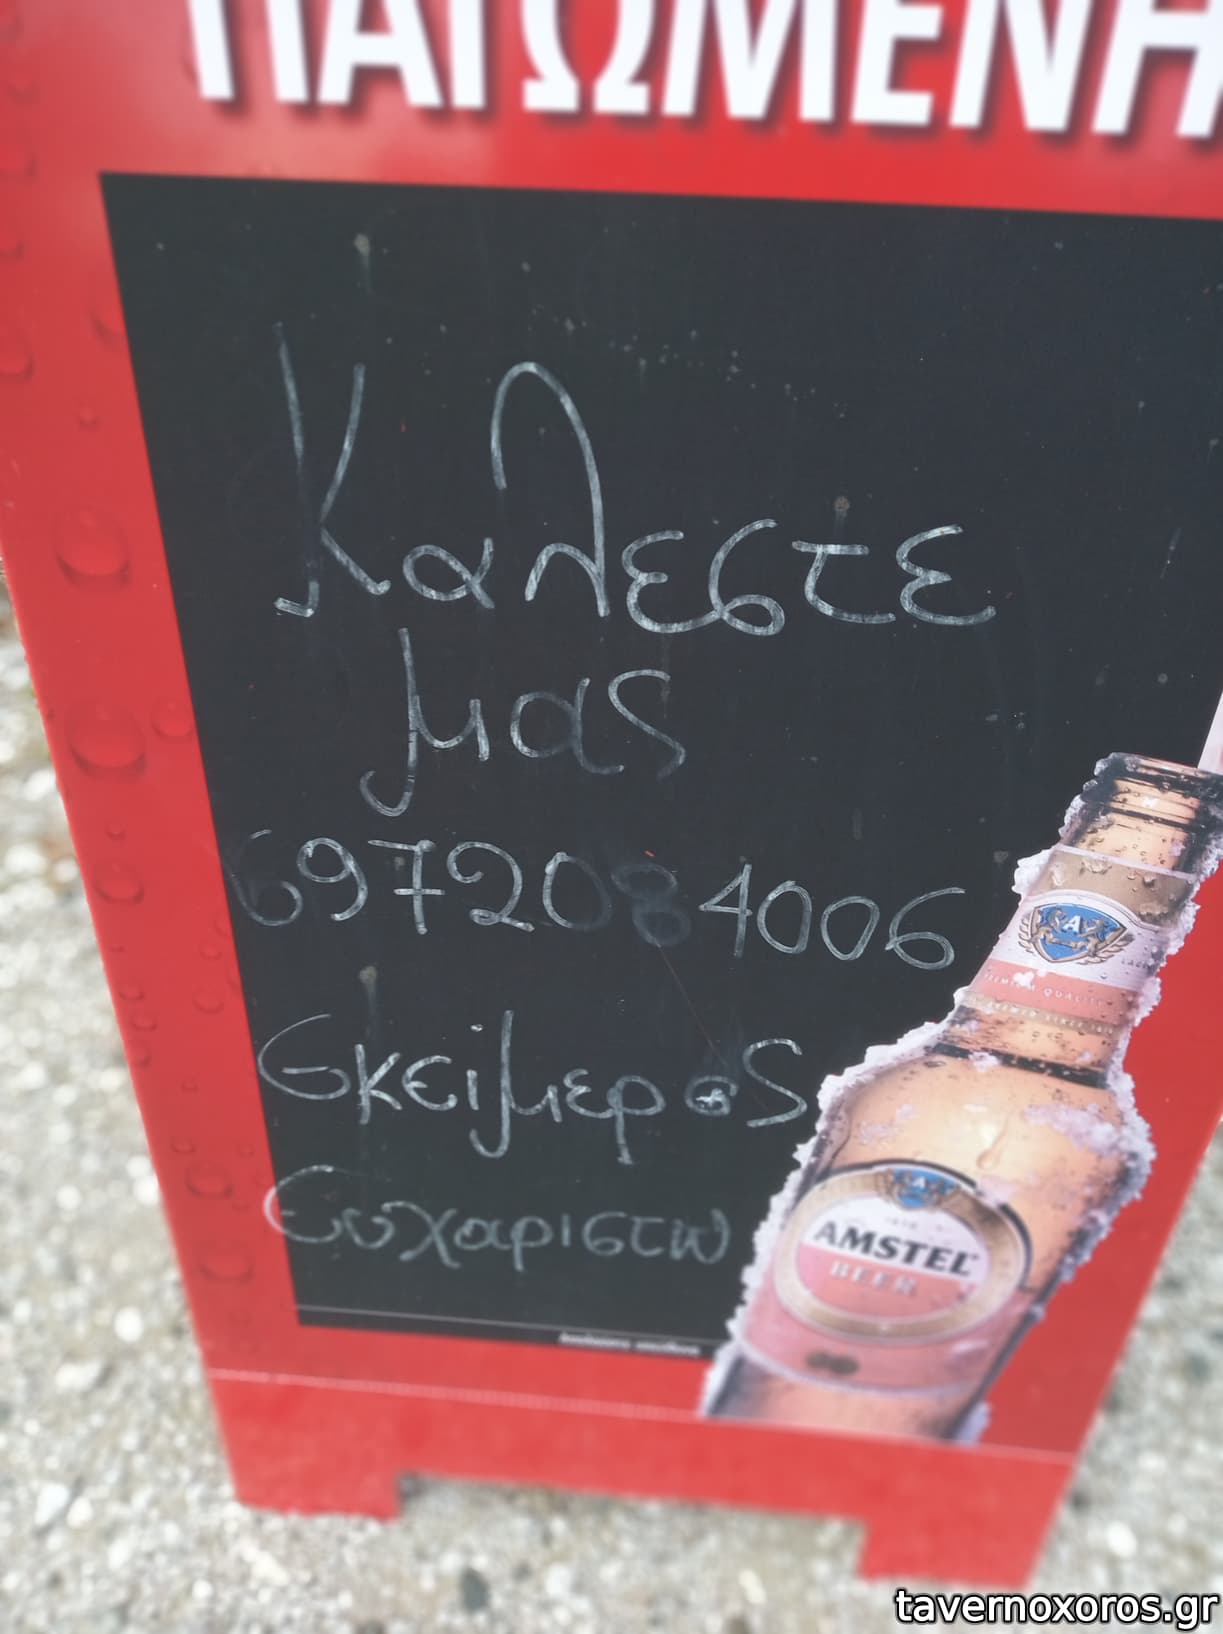 ΠΑΓΩΜΕΝΗ
Καλεστε
μας
6972084006
Εκειμερος
Ευχαριστω
A
A
AMSTEL
BEER
tavernoxoros.gr